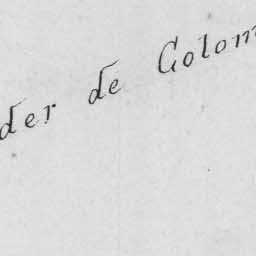 der de Golom